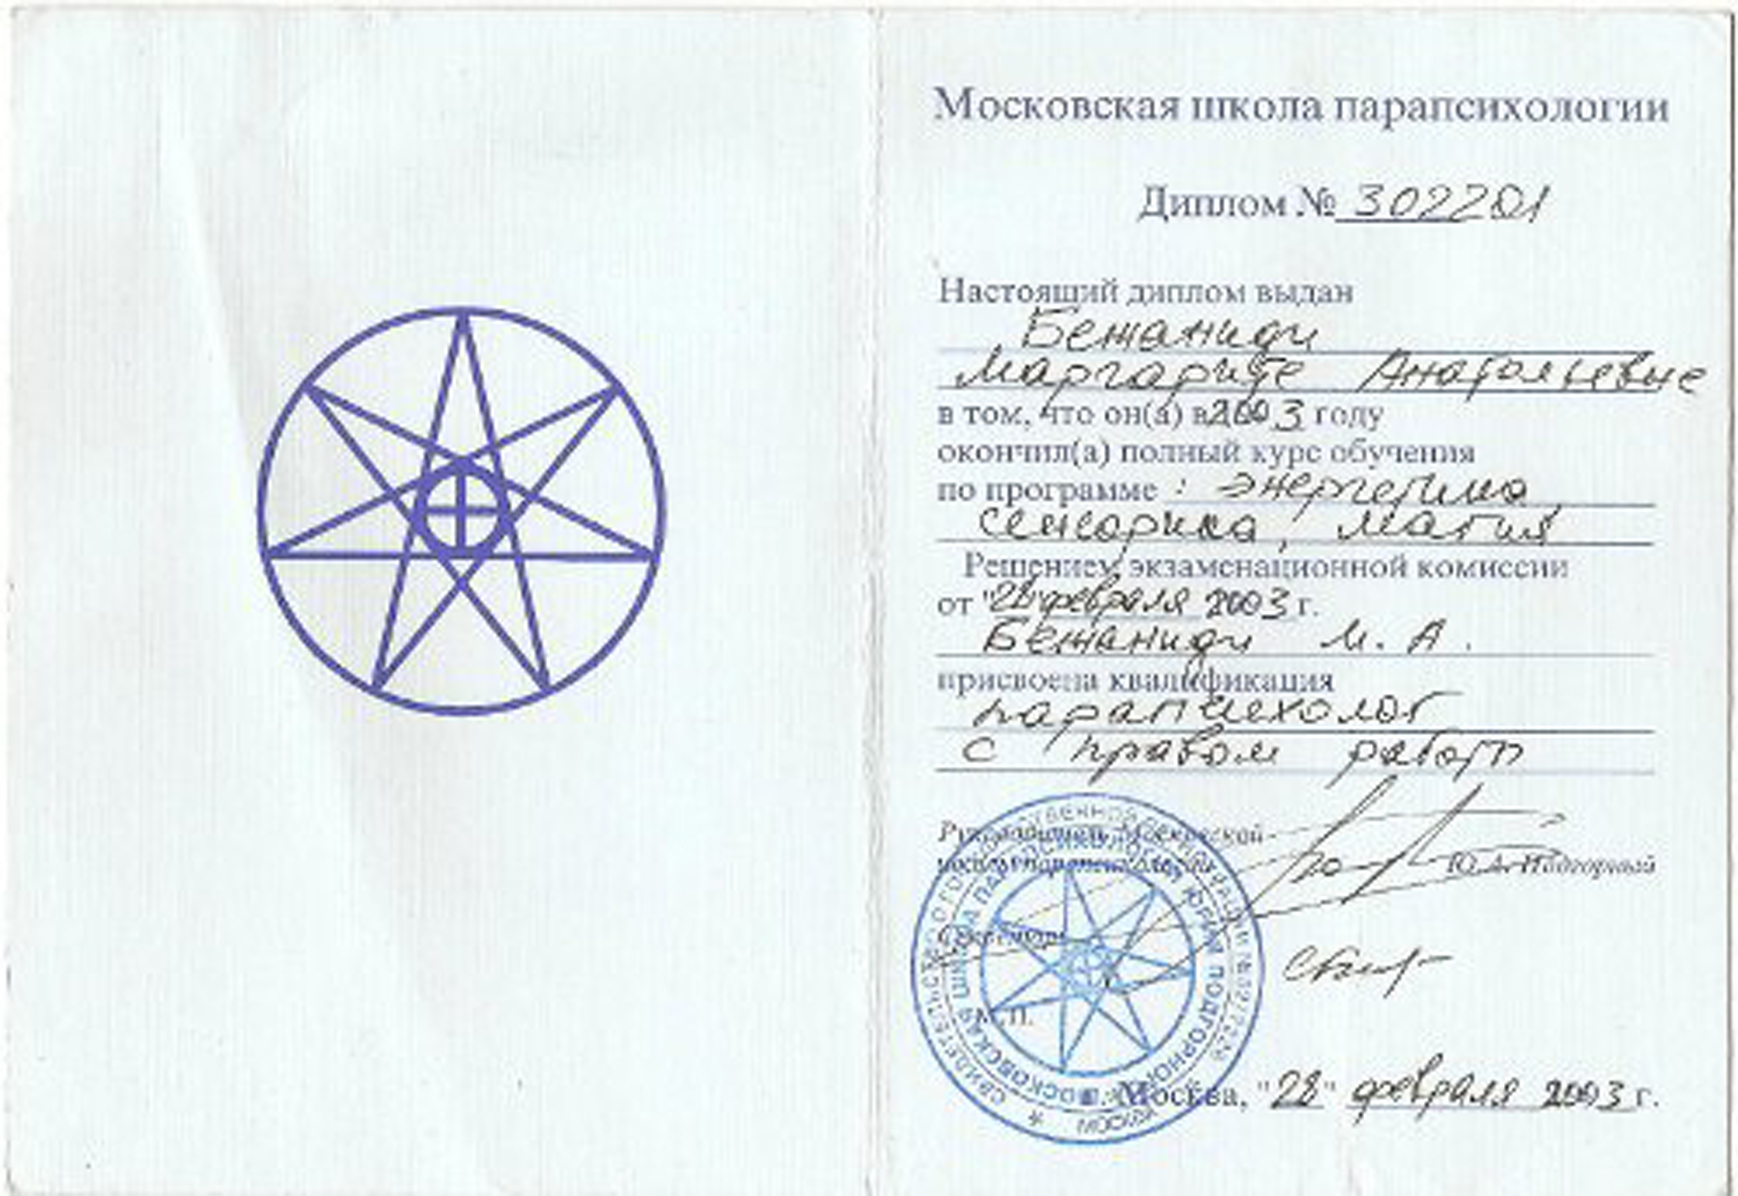 Московская школа парапсихологии
Диплом № 302201
Настоящий диплом выдан
Бежаниди
Маргарите Анатольевне
в том, что он(а) в 2003 году
окончил(а) полный курс обучения
по программе: энергетика
сенсорика, магия
Решением экзаменационной комиссии
от "28" февраля 2003 г.
Бежаниди М. А.
присвоена квалификация
парапсихолог
с правом работы
Руководитель Московской
школы парапсихологии Ю.А. Подгорный
Секретарь
М.П.
МОСКОВСКАЯ ШКОЛА ПАРАПСИХОЛОГИИ ЮРИЯ ПОДГОРНОГО
МОСКВА
Москва, "28" февраля 2003 г.